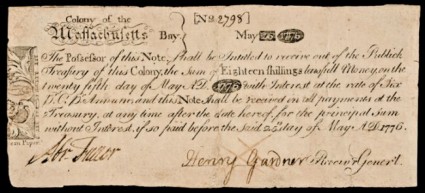 Colony of the
Massachusetts Bay
[No 2798]
May 25 1776
The Possessor of this Note, shall be Intitled to receive out of the Publick
Treasury of this Colony, the Sum of Eighteen shillings lawfull Money, on the
twenty fifth day of May A.D. 1778 with Interest at the rate of Six
P. C. P Annum and this Note shall be received in all payments at the
Treasury, at any time after the date hereof, for the principal Sum
without Interest, if so paid before the Said 25 day of May A.D. 1776.
Abr. Fuller
Henry Gardner Receivr Generl.